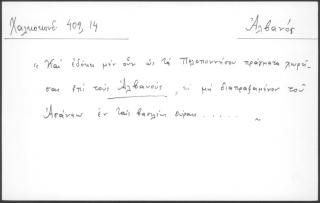 Χαλκοκονδ 409, 14
Ἀλβανός
" Καὶ ἐδόκει μὲν οὖν ὡς τὰ Πελοποννήσου πράγματα χωρή-
σαι ἐπὶ τοὺς Ἀλβανούς, τι μὴ διαπραξαμένου τοῦ
Ἀσάνεω ἐν ταῖς βασιλέως θύραις . . . . . "